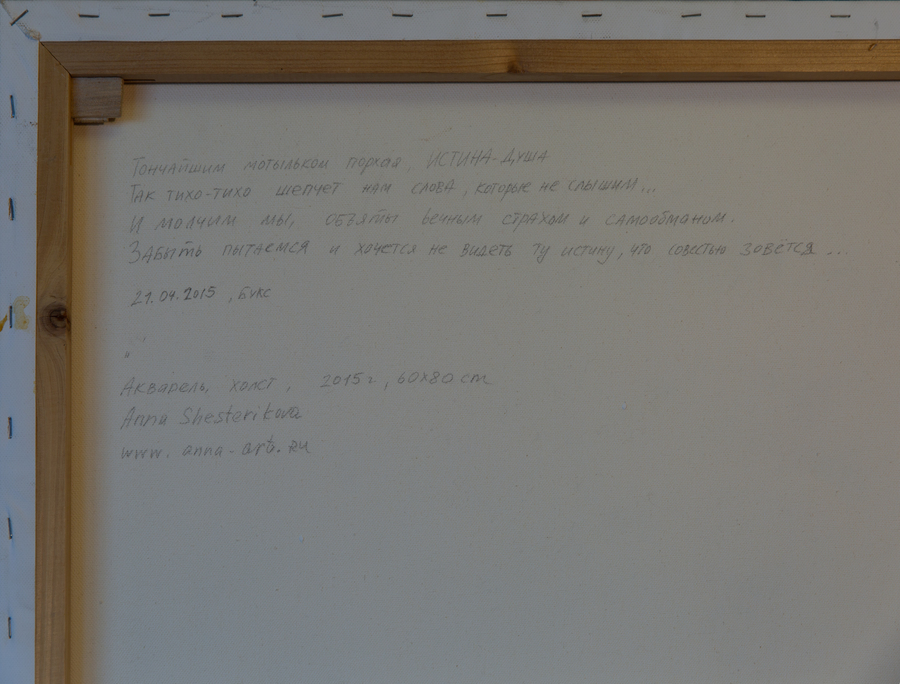 Тончайшим мотыльком порхая, ИСТИНА-ДУША
Так тихо-тихо шепчет нам слова, которые не слышим...
И молчим мы, объяты вечным страхом и самообманом.
Забыть пытаемся и хочется не видеть ту истину, что совестью зовётся...
21.04.2015, Букс
Акварель, холст, 2015 г, 60х80 cm
Anna Shesterikova
www.anna-art.ru